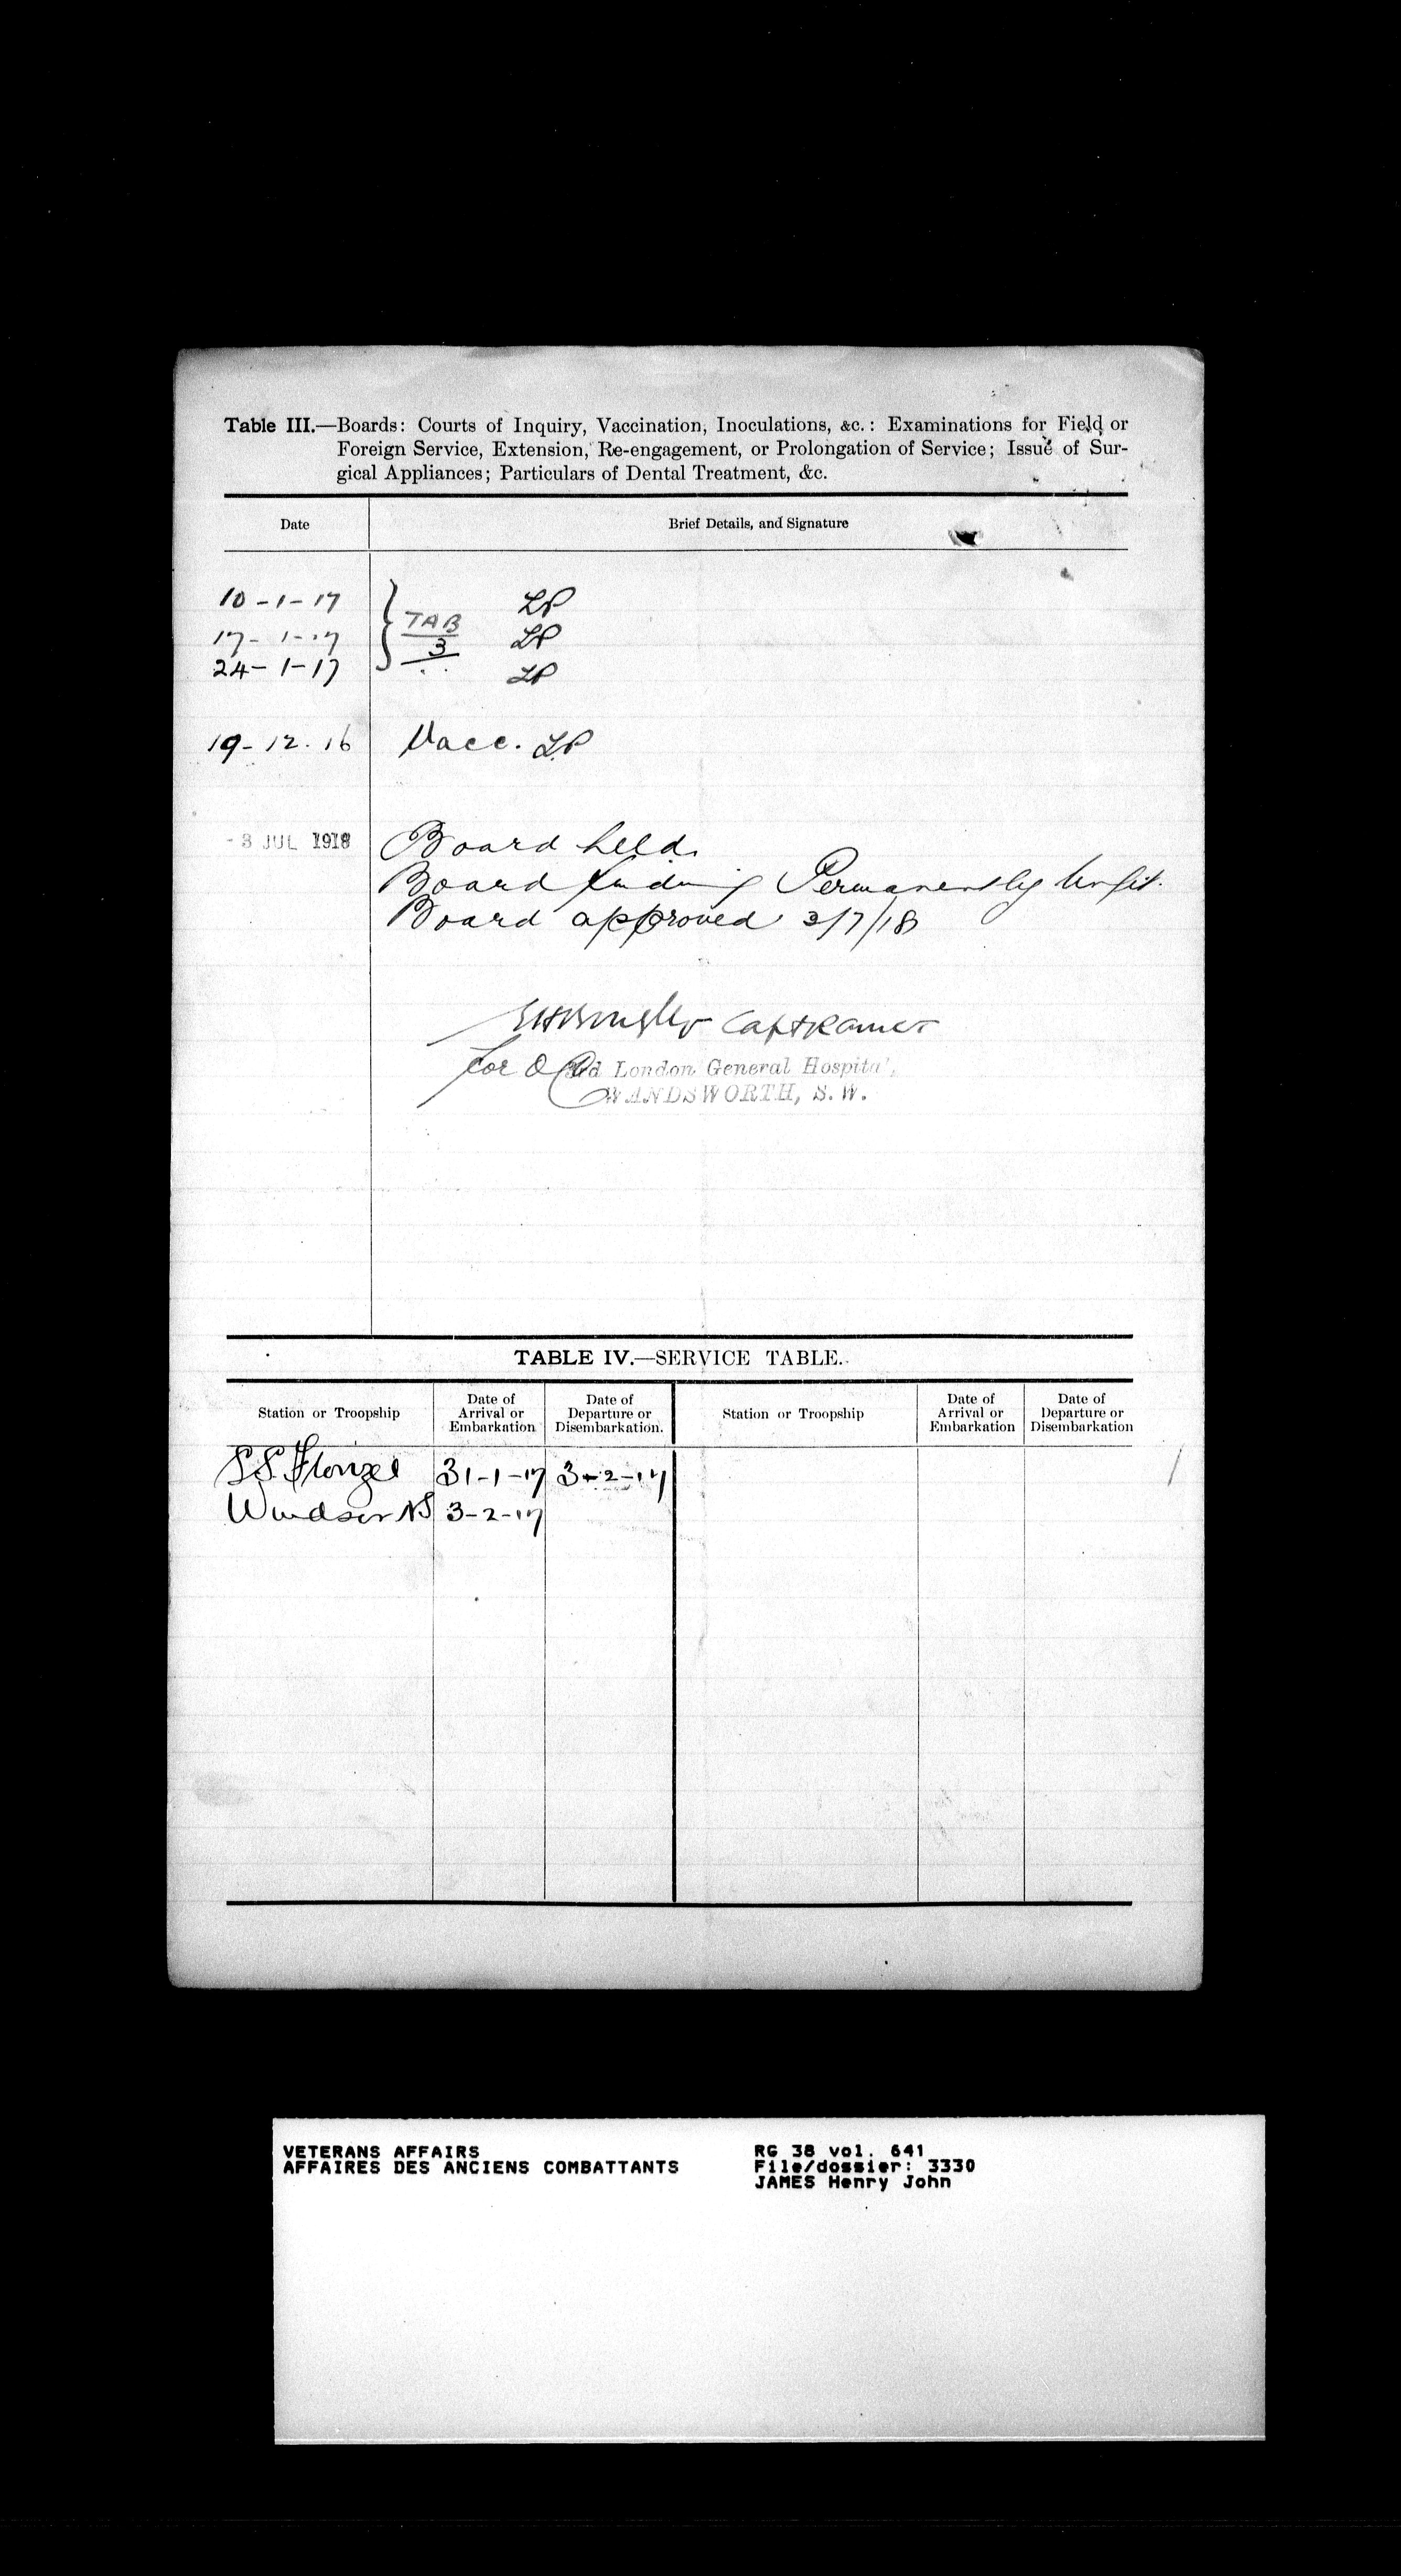 Table III.—Boards: Courts of Inquiry, Vaccination, Inoculations, &c.: Examinations for Field or
Foreign Service, Extension, Re-engagement, or Prolongation of Service; Issue of Sur-
gical Appliances; Particulars of Dental Treatment, &c.
Date Brief Details, and Signature
10-1-17 TAB LP
17-1-17 3 LP
24-1-17 LP
19-12-16 Vacc. LP
-3 JUL 1918 Board held.
Board finding Permanently Unfit.
Board approved 3/7/18
Capt RAMCT
for O C 3rd London General Hospital,
WANDSWORTH, S.W.
TABLE IV.—SERVICE TABLE.
Station or Troopship Date of Arrival or Embarkation Date of Departure or Disembarkation. Station or Troopship Date of Arrival or Embarkation Date of Departure or Disembarkation
S.S. Florizel 31-1-17 3-2-17
Windsor NS 3-2-17
VETERANS AFFAIRS RG 38 vol. 641
AFFAIRES DES ANCIENS COMBATTANTS File/dossier: 3330
JAMES Henry John